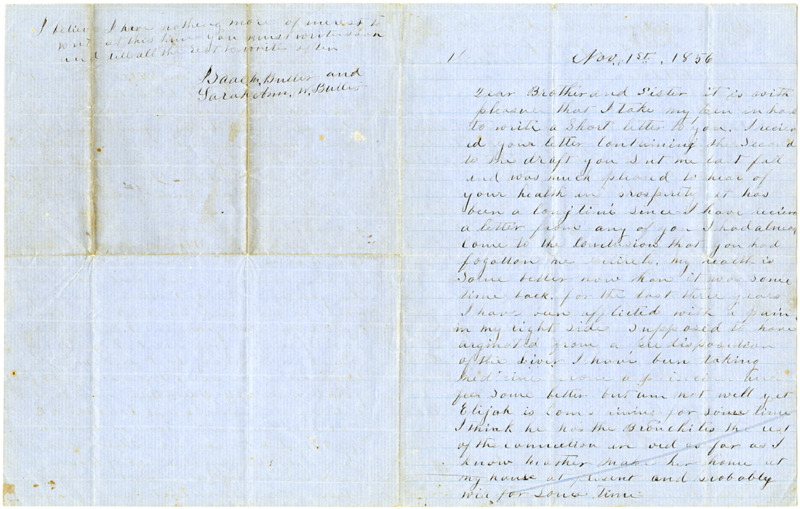 I believe I have nothing more of interest to
write at this time you must write soon
and tell all the rest to write often
Isaac W. Butler and
Sarah Ann. W. Butler
1
Nov, 1st, 1856
Dear Brother and Sister it is with
pleasure that I take my pen in hand
to write a Short letter to you. I reciev
ed your letter Containing the Second
to the draft you Sent me last fall
and was much pleased to hear of
your health an prosperity it has
been a long time since I have reciev
a letter from any of you I had almost
come to the conclusion that you had
fogotton me entirely. my health is
Some better now than it was some
time back. for the last three years
I have been afflicted with a pain
in my right side Supposed to have
arginated from a
of the liver I have been taking
medicine from a
feer some better but am not well yet
Elijah is for some time
I think he has the Bronchitis the rest
of the connection are well as far as I
know Mother makes her home at
my house at present and probably
will for some time